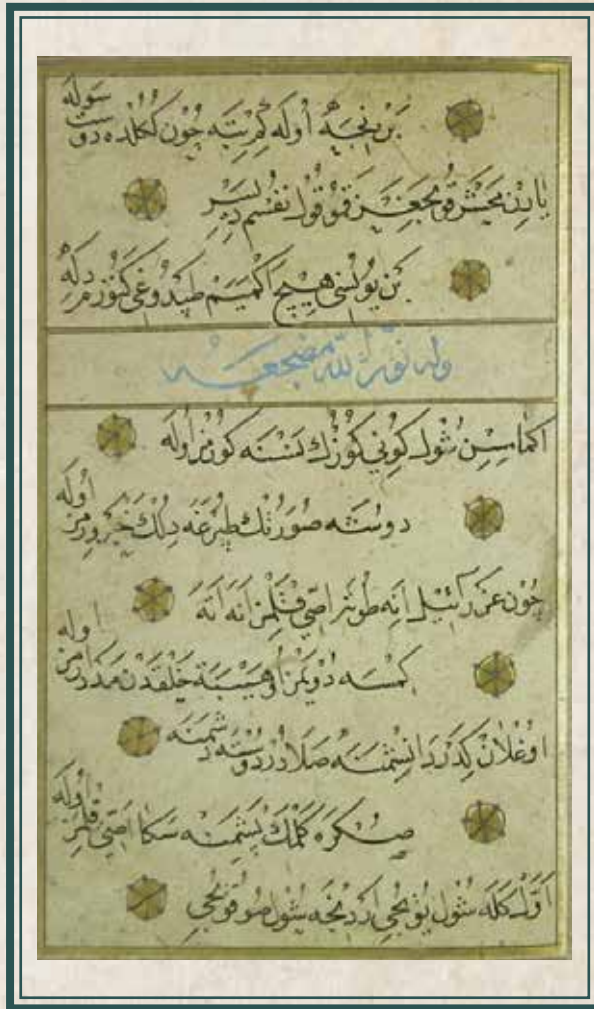 بن نيجه اوله كم يته چون ككلده دوست سوله
يارن محشر قوپجغز قمو قول نفسم ديسر
بن يونسى هيچ اكميم طپدوغى كتورم دله
وله نور الله مضجعه
اكماسن شول كونى كوزك نسنه كورمز اوله
دوشه صورتك طپرغه دلك خبر ورمز اوله
چون عزرائيل انه طوته اصى قلمز انه اته
كمسه دويمز او هيبته خلقدن مدد ارمز اوله
اوغلان كدر دانشمنه صلادر دوسته دشمنه
صكره كلمك پشمنه سكا اصى قلمز اوله
اول كله شول يويجى اردنجه شول صو قويجى